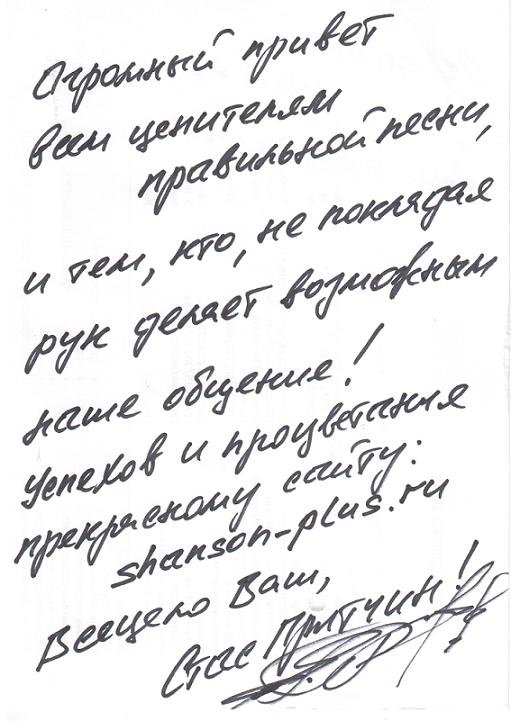 Огромный привет
вам ценителям
правильной песни,
и тем, кто, не покладая
рук делает возможным
наше общение!
Успехов и процветания
прекрасному сайту:
shanson-plus.ru
Всецело Ваш,
Стас Притчин!